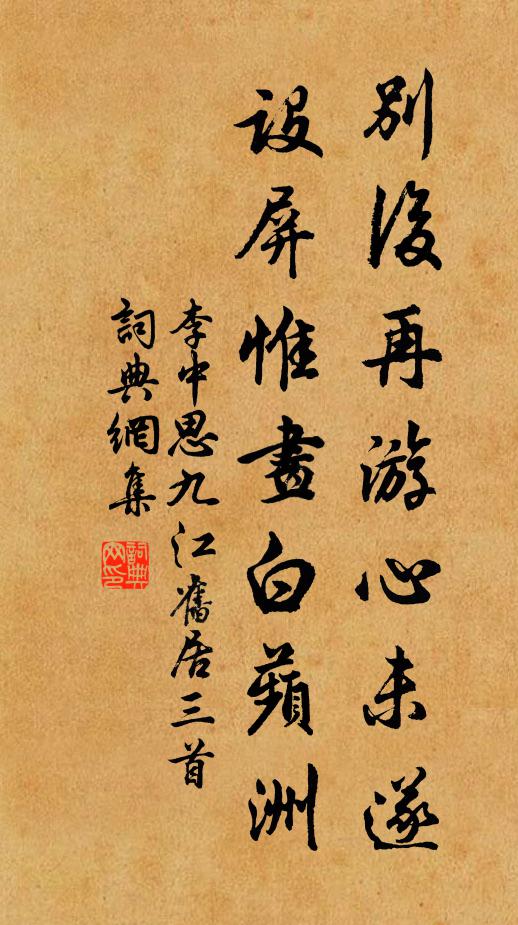 別後再游心未遂
設屏惟畫白蘋洲
李中思九江舊居三首
詞典網集
詞典网印